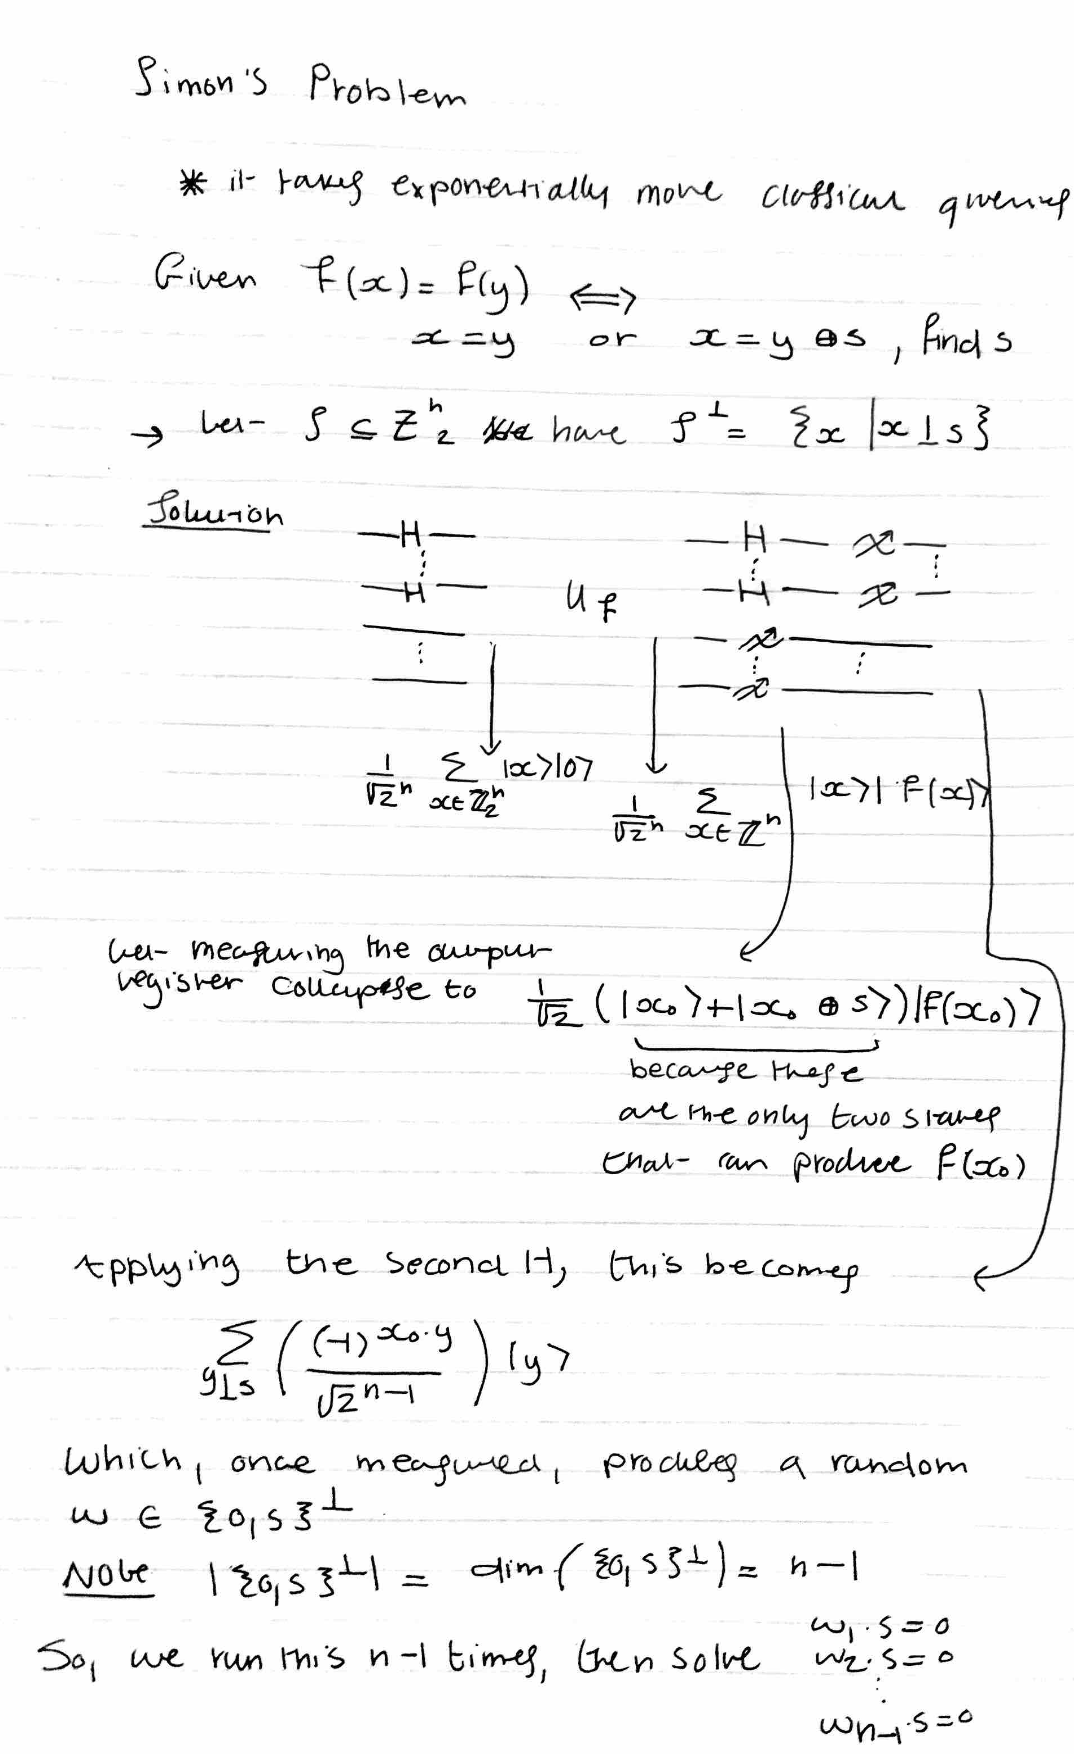 Simon's Problem
* it takes exponentially more classical queries
Given f(x) = f(y) ⟺
x = y or x = y ⊕ s , find s
→ let S ⊆ Z₂ⁿ have S^⊥ = {x | x ⊥ s}
Solution
—H— —H— x —
⋮ ⋮ ⋮
—H— U_f —H— x —
— x —
⋮ ⋮ ⋮
— x —
1/√2ⁿ Σ_{x∈ℤ₂ⁿ} |x⟩|0⟩
1/√2ⁿ Σ_{x∈ℤⁿ} |x⟩|f(x)⟩
let measuring the output
register collapse to 1/√2 (|x₀⟩+|x₀ ⊕ s⟩)|f(x₀)⟩
because these
are the only two states
that can produce f(x₀)
Applying the second H, this becomes
Σ_{y⊥s} ( (-1)^{x₀·y} / √2^{n-1} ) |y⟩
Which, once measured, produces a random
w ∈ {0,s}^⊥
Note |{0,s}^⊥| = dim({0,s}^⊥) = n-1
So, we run this n-1 times, then solve
w₁·s=0
w₂·s=0
⋮
w_{n-1}·s=0